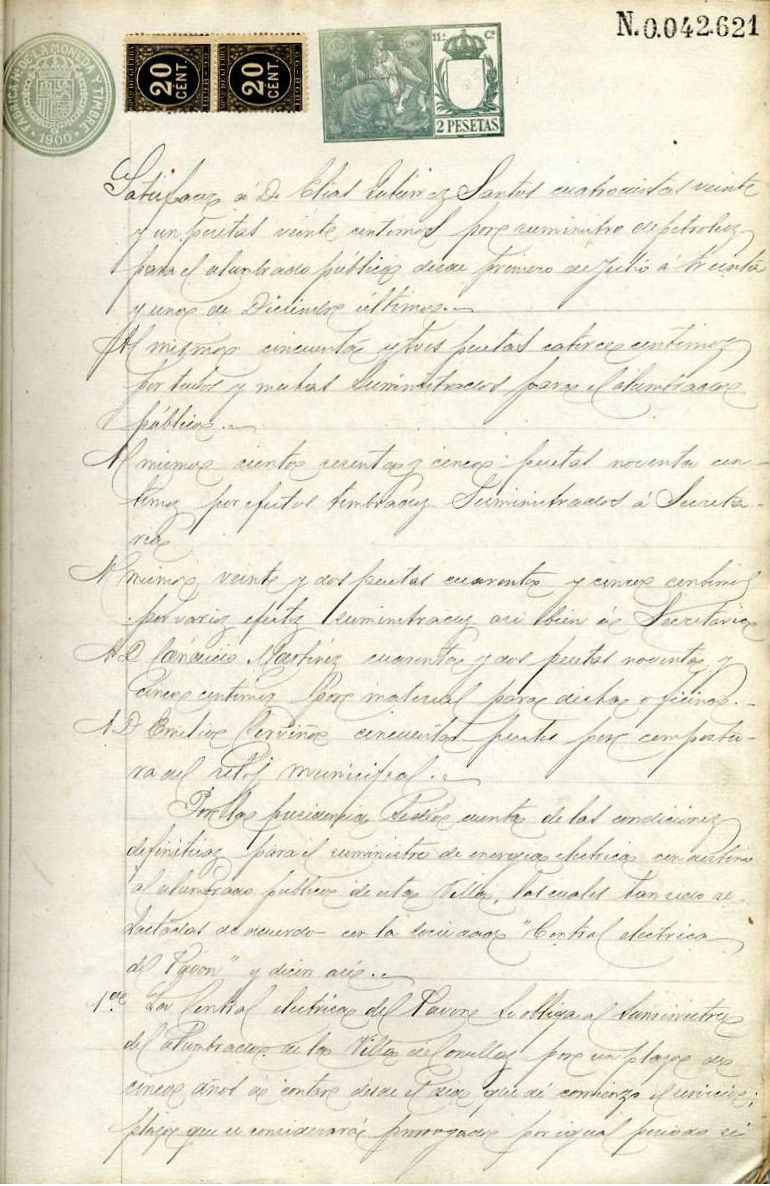 N.0.042.621
FÁBRICA Nal DE LA MONEDA Y TIMBRE
1900
20 CENT.
20 CENT.
11.ª Cª
2 PESETAS
Satisfacer á Dn Elias Gutierrez Santos cuatrocientas veinte
y un pesetas veinte centimos por suministro de petroleo
para el alumbrado público desde primero de Julio á treinta
y uno de Diciembre último.
Al mismo cincuenta y tres pesetas catorce centimos
por tubos y mechas suministrados para el alumbrado
público.
Al mismo ciento sesenta y cinco pesetas noventa cen-
timos por efectos timbrados suministrados á Secreta-
ria
Al mismo veinte y dos pesetas cuarenta y cinco centimos
por varios efectos suministrados asi bien á Secretaria
A D. Martinez cuarenta y dos pesetas noventa y
cinco centimos por material para dicha oficina.
A D Emilio cincuenta pesetas por compostu-
ra del reloj municipal.
Por la presidencia se dió cuenta de las condiciones
definitivas para el suministro de energia electrica con destino
al alumbrado publico de esta Villa, las cuales han sido re-
dactadas de acuerdo con la sociedad "Central electrica
del Pavon" y dicen asi.
1.ª La Central electrica del Pavon se obliga al suministro
del alumbrado de la Villa de Comillas por un plazo de
cinco años á contar desde el dia que dé comienzo el servicio;
plazo que se considerará prorrogado por igual periodo si